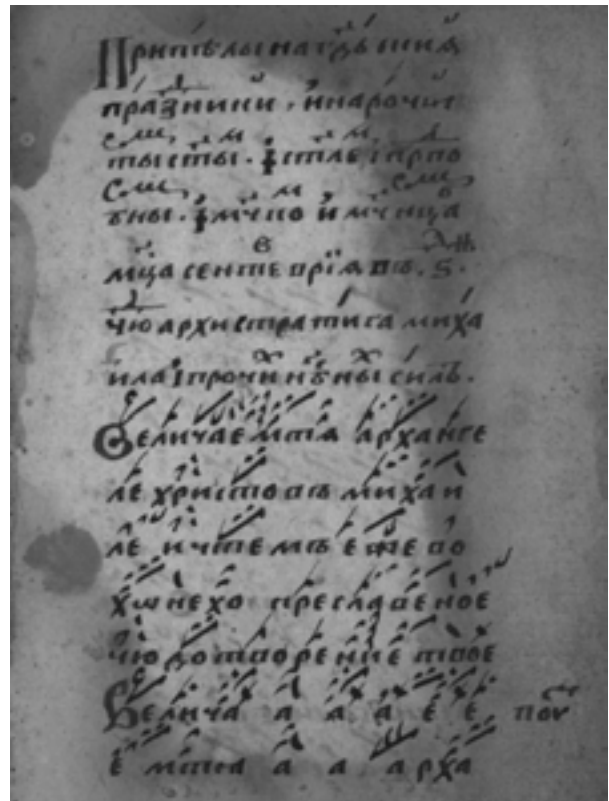 Припѣлы на гдⷭьския
праздники, и нарочи
ты ст҃ы. ї ст҃ль ї прпо
бны. ї мчко и мчнца
мцⷭа сентевріѧ въ. ѕ.
чю архистратига миха
ила ї прочи нбны силъ.
Величаемтѧ арханге
ле христовъ михаи
ле и чтемъ еже во
хѡнехо преславеное
чюдотворение твое
Велича а а а е е поу
е мтиа а а арха